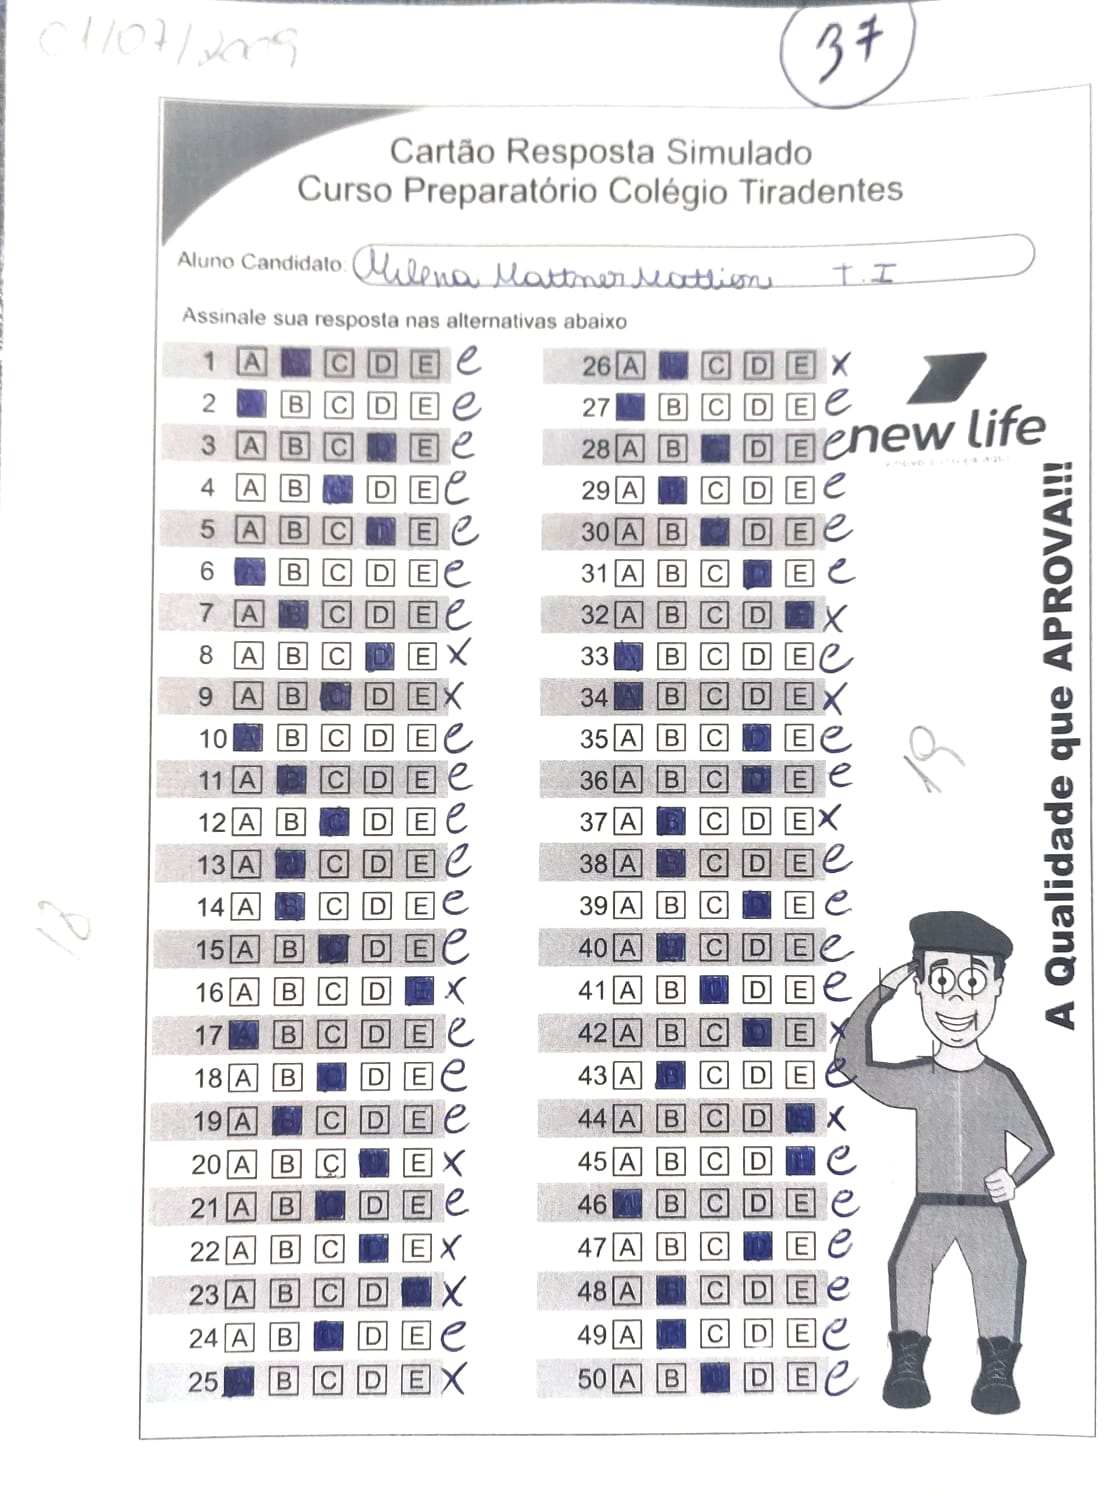 01/07/2009
37
Cartão Resposta Simulado
Curso Preparatório Colégio Tiradentes
Aluno Candidato: Milena Mattner Mattion T.I
Assinale sua resposta nas alternativas abaixo
1 A C D E e
2 B C D E e
3 A B C E e
4 A B C D E e
5 A B C D E e
6 A B C D E e
7 A B C D E e
8 A B C D E x
9 A B C D E x
10 A B C D E e
11 A B C D E e
12 A B C D E e
13 A B C D E e
14 A B C D E e
15 A B C D E e
16 A B C D E x
17 A B C D E e
18 A B C D E e
19 A B C D E e
20 A B C D E x
21 A B C D E e
22 A B C D E x
23 A B C D x
24 A B C D E e
25 A B C D E x
26 A C D E x
27 B C D E e
28 A B D E e
29 A B C D E e
30 A B C D E e
31 A B C D E e
32 A B C D E x
33 A B C D E e
34 A B C D E x
35 A B C D E e
36 A B C D E e
37 A B C D E x
38 A B C D E e
39 A B C D E e
40 A B C D E e
41 A B C D E e
42 A B C D E x
43 A B C D E e
44 A B C D E x
45 A B C D E e
46 A B C D E e
47 A B C D E e
48 A B C D E e
49 A B C D E e
50 A B C D E e
18
19
new life
A Qualidade que APROVA!!!